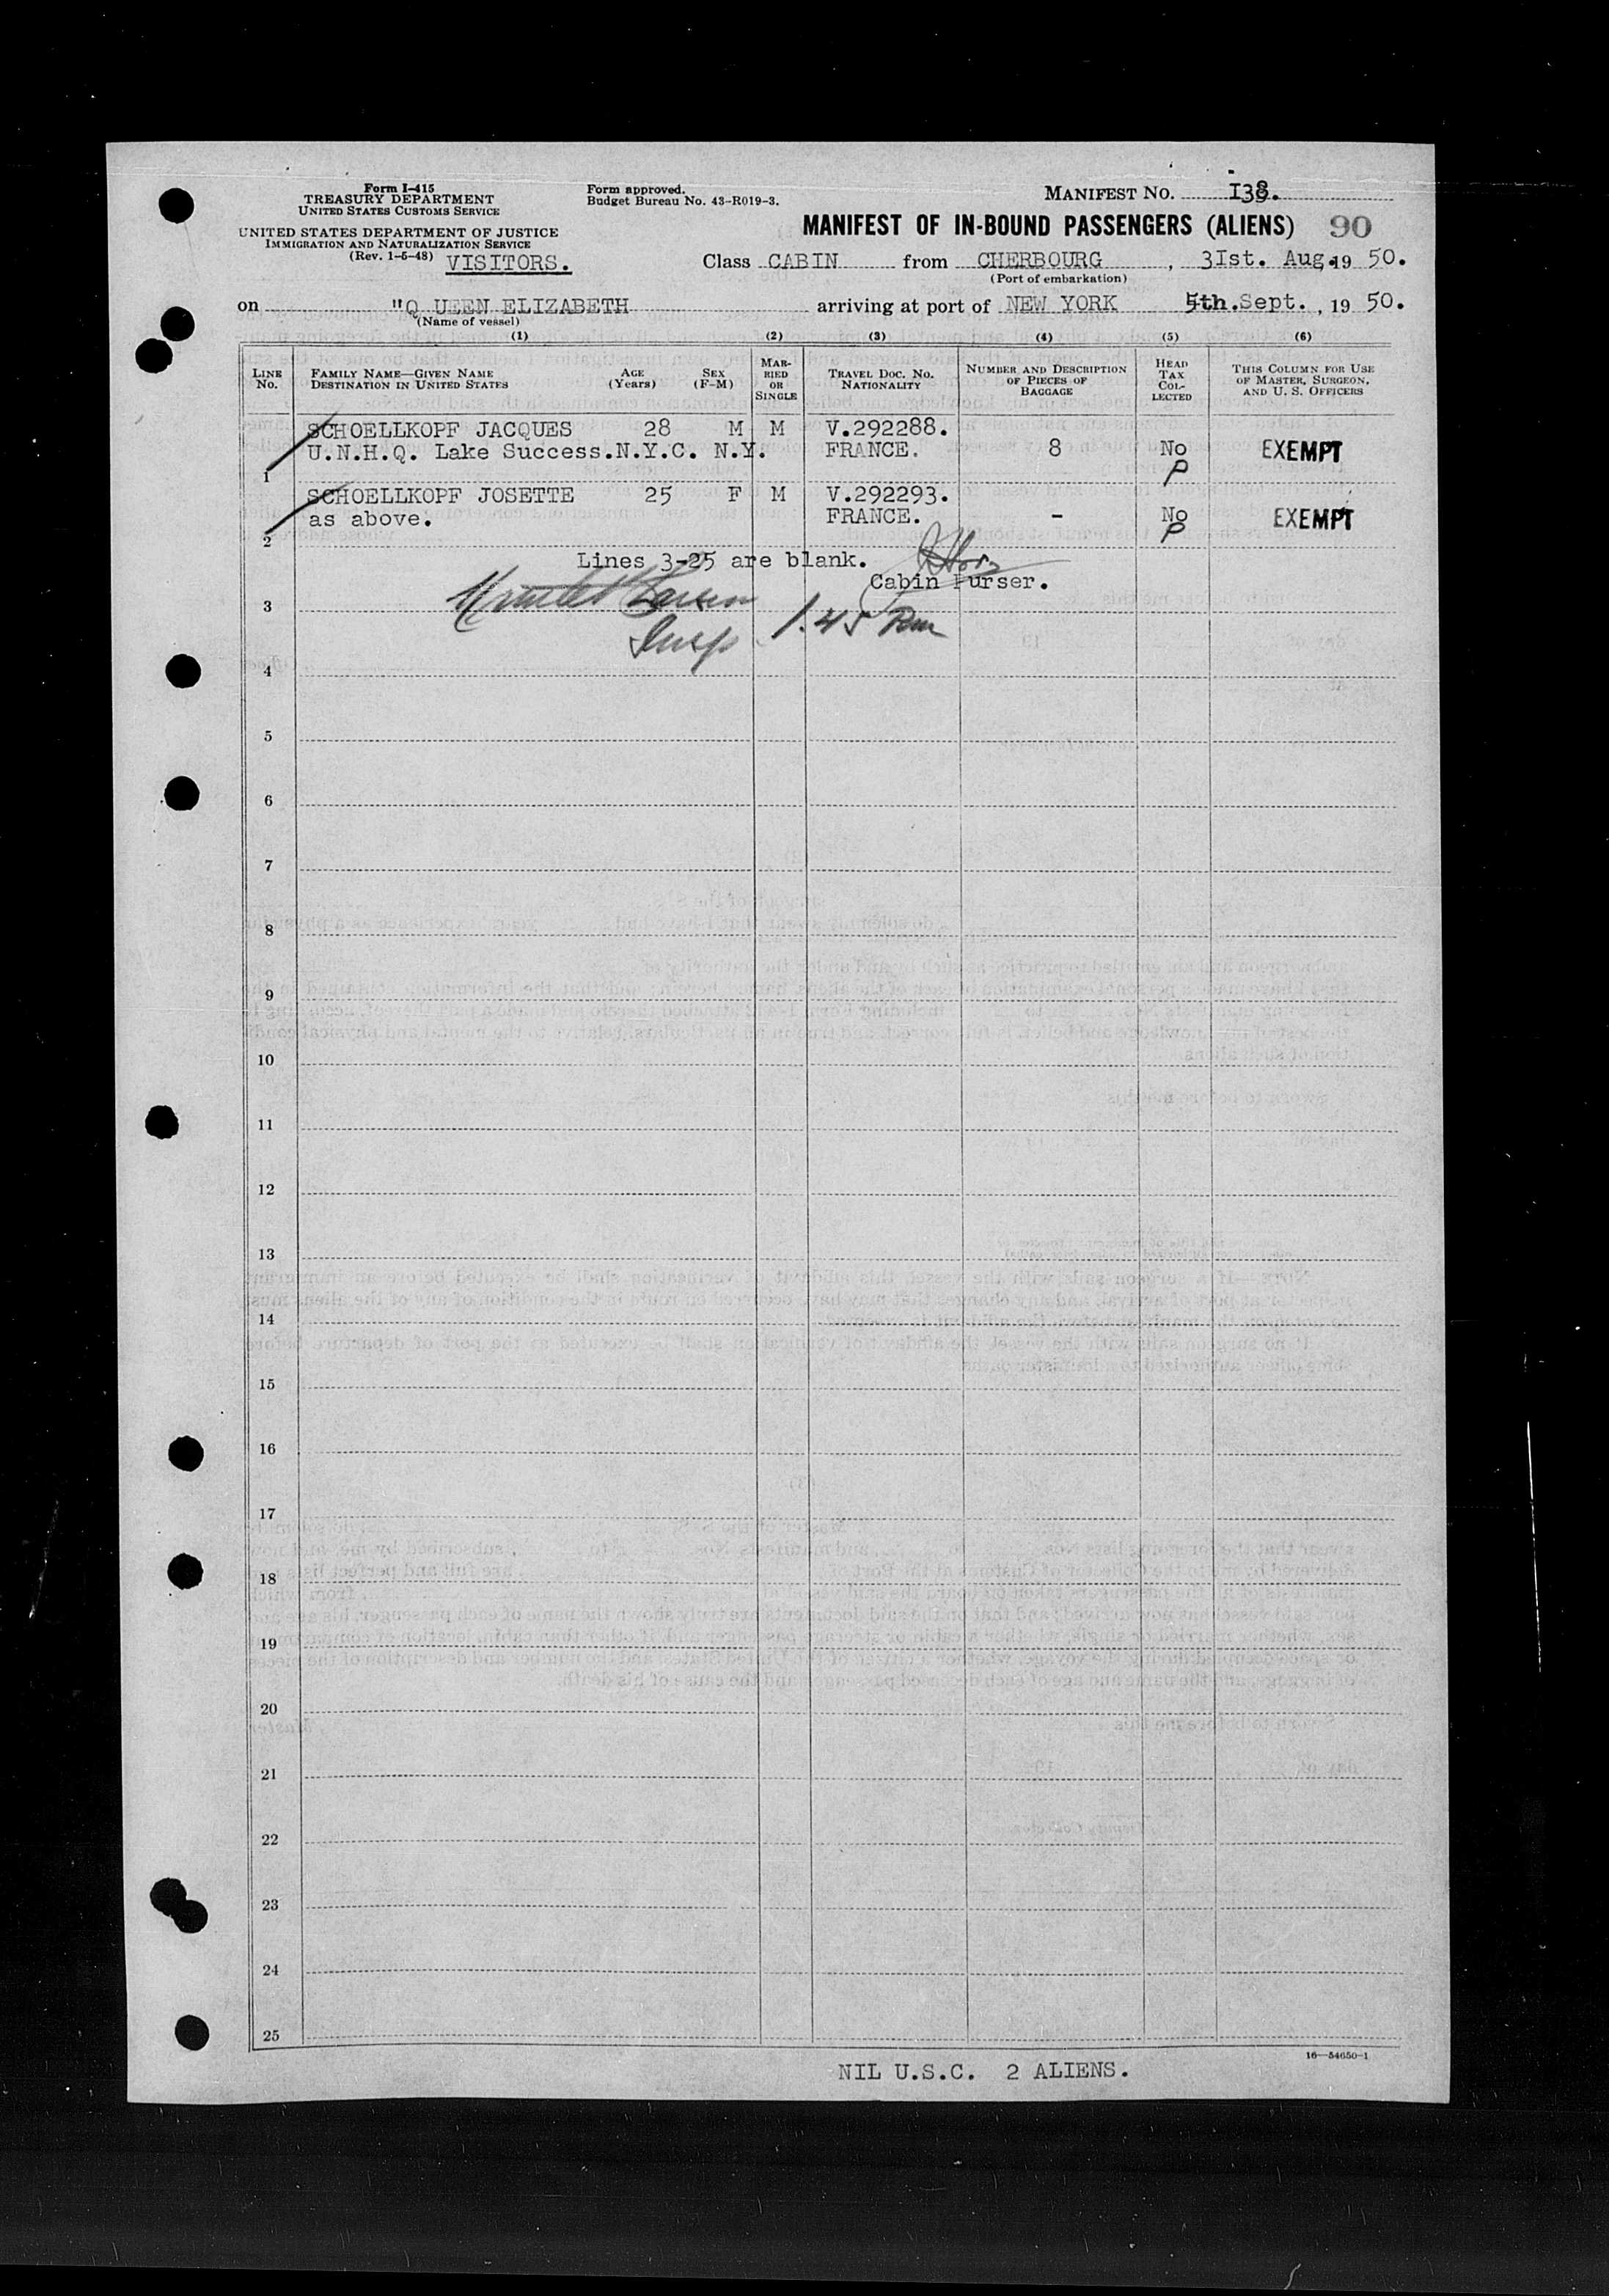 Form I-415
TREASURY DEPARTMENT
UNITED STATES CUSTOMS SERVICE
UNITED STATES DEPARTMENT OF JUSTICE
IMMIGRATION AND NATURALIZATION SERVICE
(Rev. 1-5-48) VISITORS.
Form approved.
Budget Bureau No. 43-R019-3.
MANIFEST NO. I38.
MANIFEST OF IN-BOUND PASSENGERS (ALIENS) 90
Class CABIN from CHERBOURG, 3Ist. Aug. 19 50.
(Port of embarkation)
on "Q UEEN ELIZABETH arriving at port of NEW YORK 5th. Sept., 19 50.
(Name of vessel)
(1) (2) (3) (4) (5) (6)
LINE No.
FAMILY NAME—GIVEN NAME
DESTINATION IN UNITED STATES
AGE (Years)
SEX (F-M)
MARRIED OR SINGLE
TRAVEL DOC. NO.
NATIONALITY
NUMBER AND DESCRIPTION OF PIECES OF BAGGAGE
HEAD TAX COLLECTED
THIS COLUMN FOR USE OF MASTER, SURGEON, AND U. S. OFFICERS
SCHOELLKOPF JACQUES 28 M M V.292288.
U.N.H.Q. Lake Success.N.Y.C. N.Y. FRANCE. 8 No EXEMPT
1 P
SCHOELLKOPF JOSETTE 25 F M V.292293.
as above. FRANCE. - No EXEMPT
2 P
Lines 3-25 are blank.
Cabin Purser.
3
Insp. 1.45 Pm
4
5
6
7
8
9
10
11
12
13
14
15
16
17
18
19
20
21
22
23
24
25
16—54650-1
NIL U.S.C. 2 ALIENS.